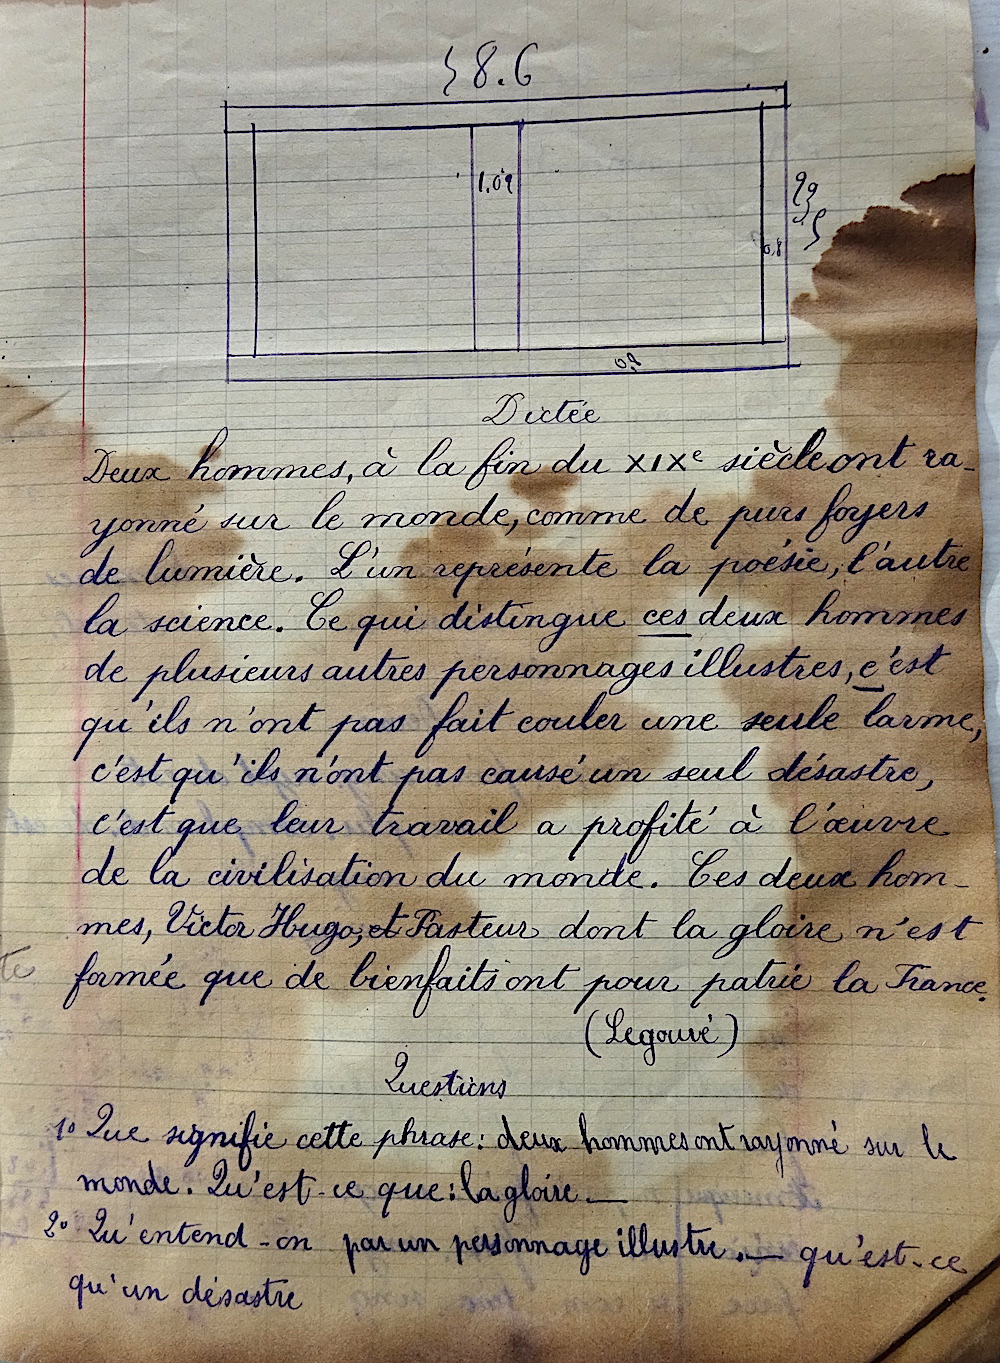 58.6
1.09
0,8
0,8
Dictée
Deux hommes, à la fin du XIXe siècle ont ra-
yonné sur le monde, comme de purs foyers
de lumière. L'un représente la poésie, l'autre
la science. Ce qui distingue ces deux hommes
de plusieurs autres personnages illustres, c'est
qu'ils n'ont pas fait couler une seule larme,
c'est qu'ils n'ont pas causé un seul désastre,
c'est que leur travail a profité à l'œuvre
de la civilisation du monde. Ces deux hom-
mes, Victor Hugo, et Pasteur dont la gloire n'est
formée que de bienfaits ont pour patrie la France.
(Legouvé)
Questions
1° Que signifie cette phrase : deux hommes ont rayonné sur le
monde. Qu'est-ce que : la gloire. —
2° Qu'entend-on par un personnage illustre. — qu'est-ce
qu'un désastre